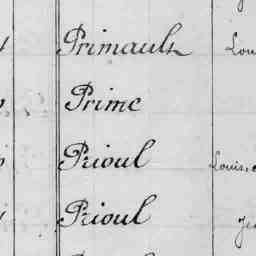 Primault Lou
Prime
Prioul Louis,
Prioul